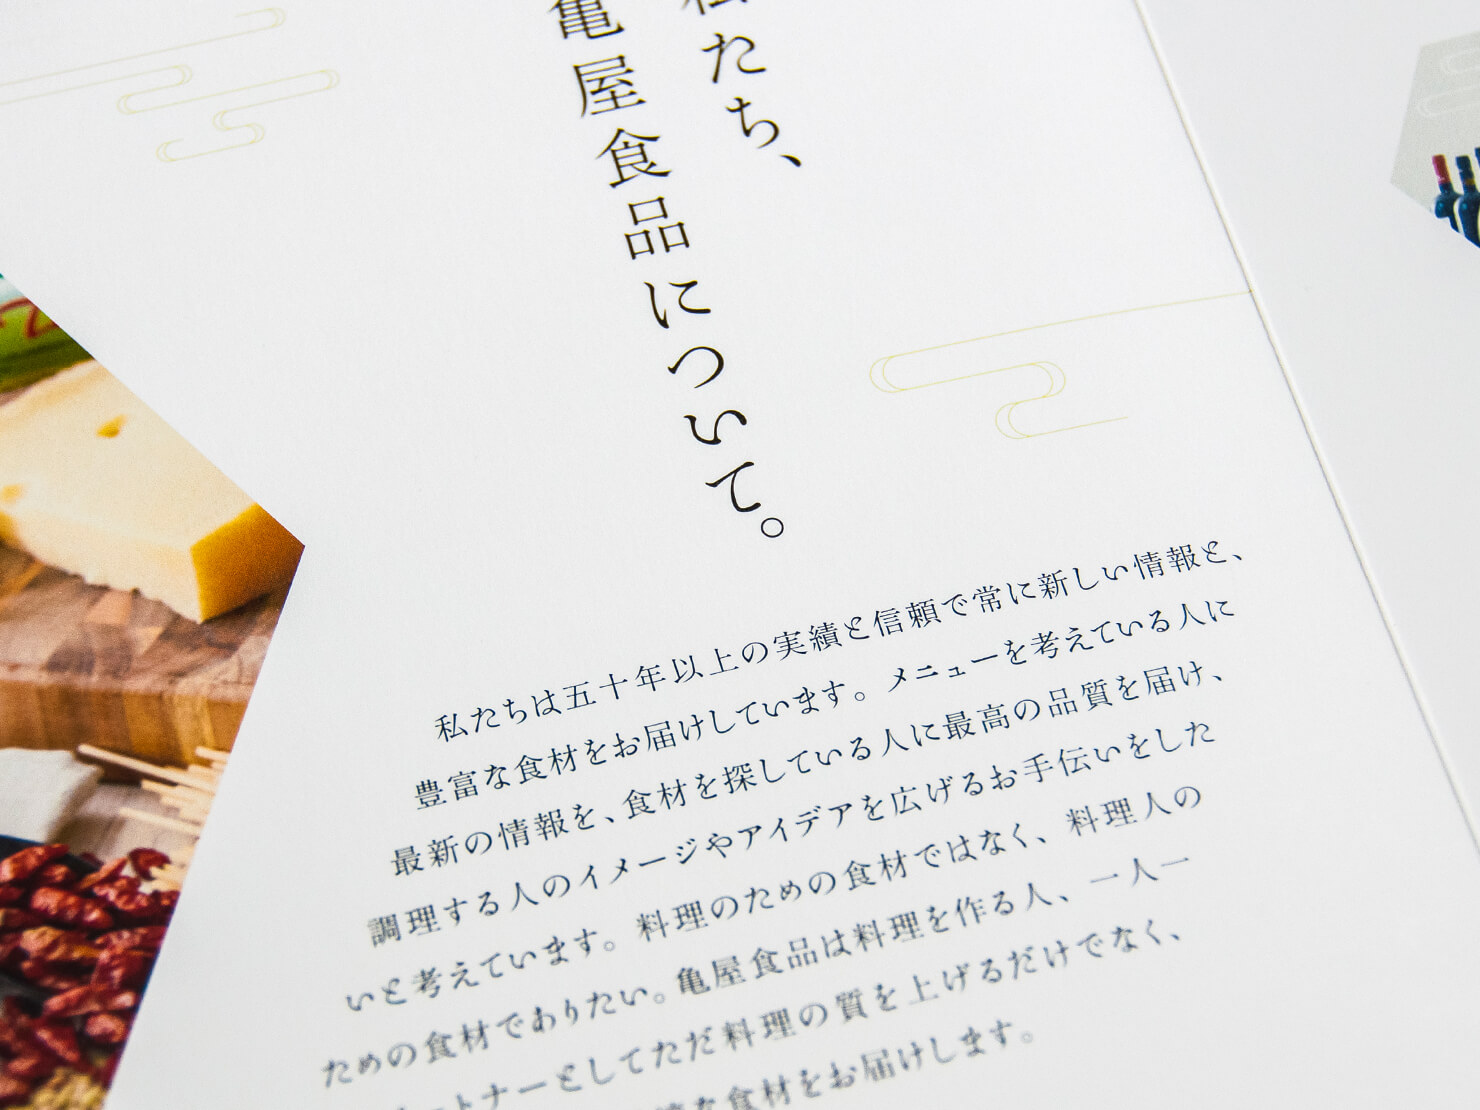 私たち、
亀屋食品について。
私たちは五十年以上の実績と信頼で常に新しい情報と、
豊富な食材をお届けしています。メニューを考えている人に
最新の情報を、食材を探している人に最高の品質を届け、
調理する人のイメージやアイデアを広げるお手伝いをした
いと考えています。料理のための食材ではなく、料理人の
ための食材でありたい。亀屋食品は料理を作る人、一人一
ートナーとしてただ料理の質を上げるだけでなく、
な食材をお届けします。